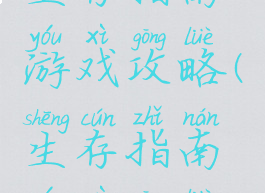 yóu xì gōng lüè
游戏攻略(
shēng cún zhǐ nán
生存指南